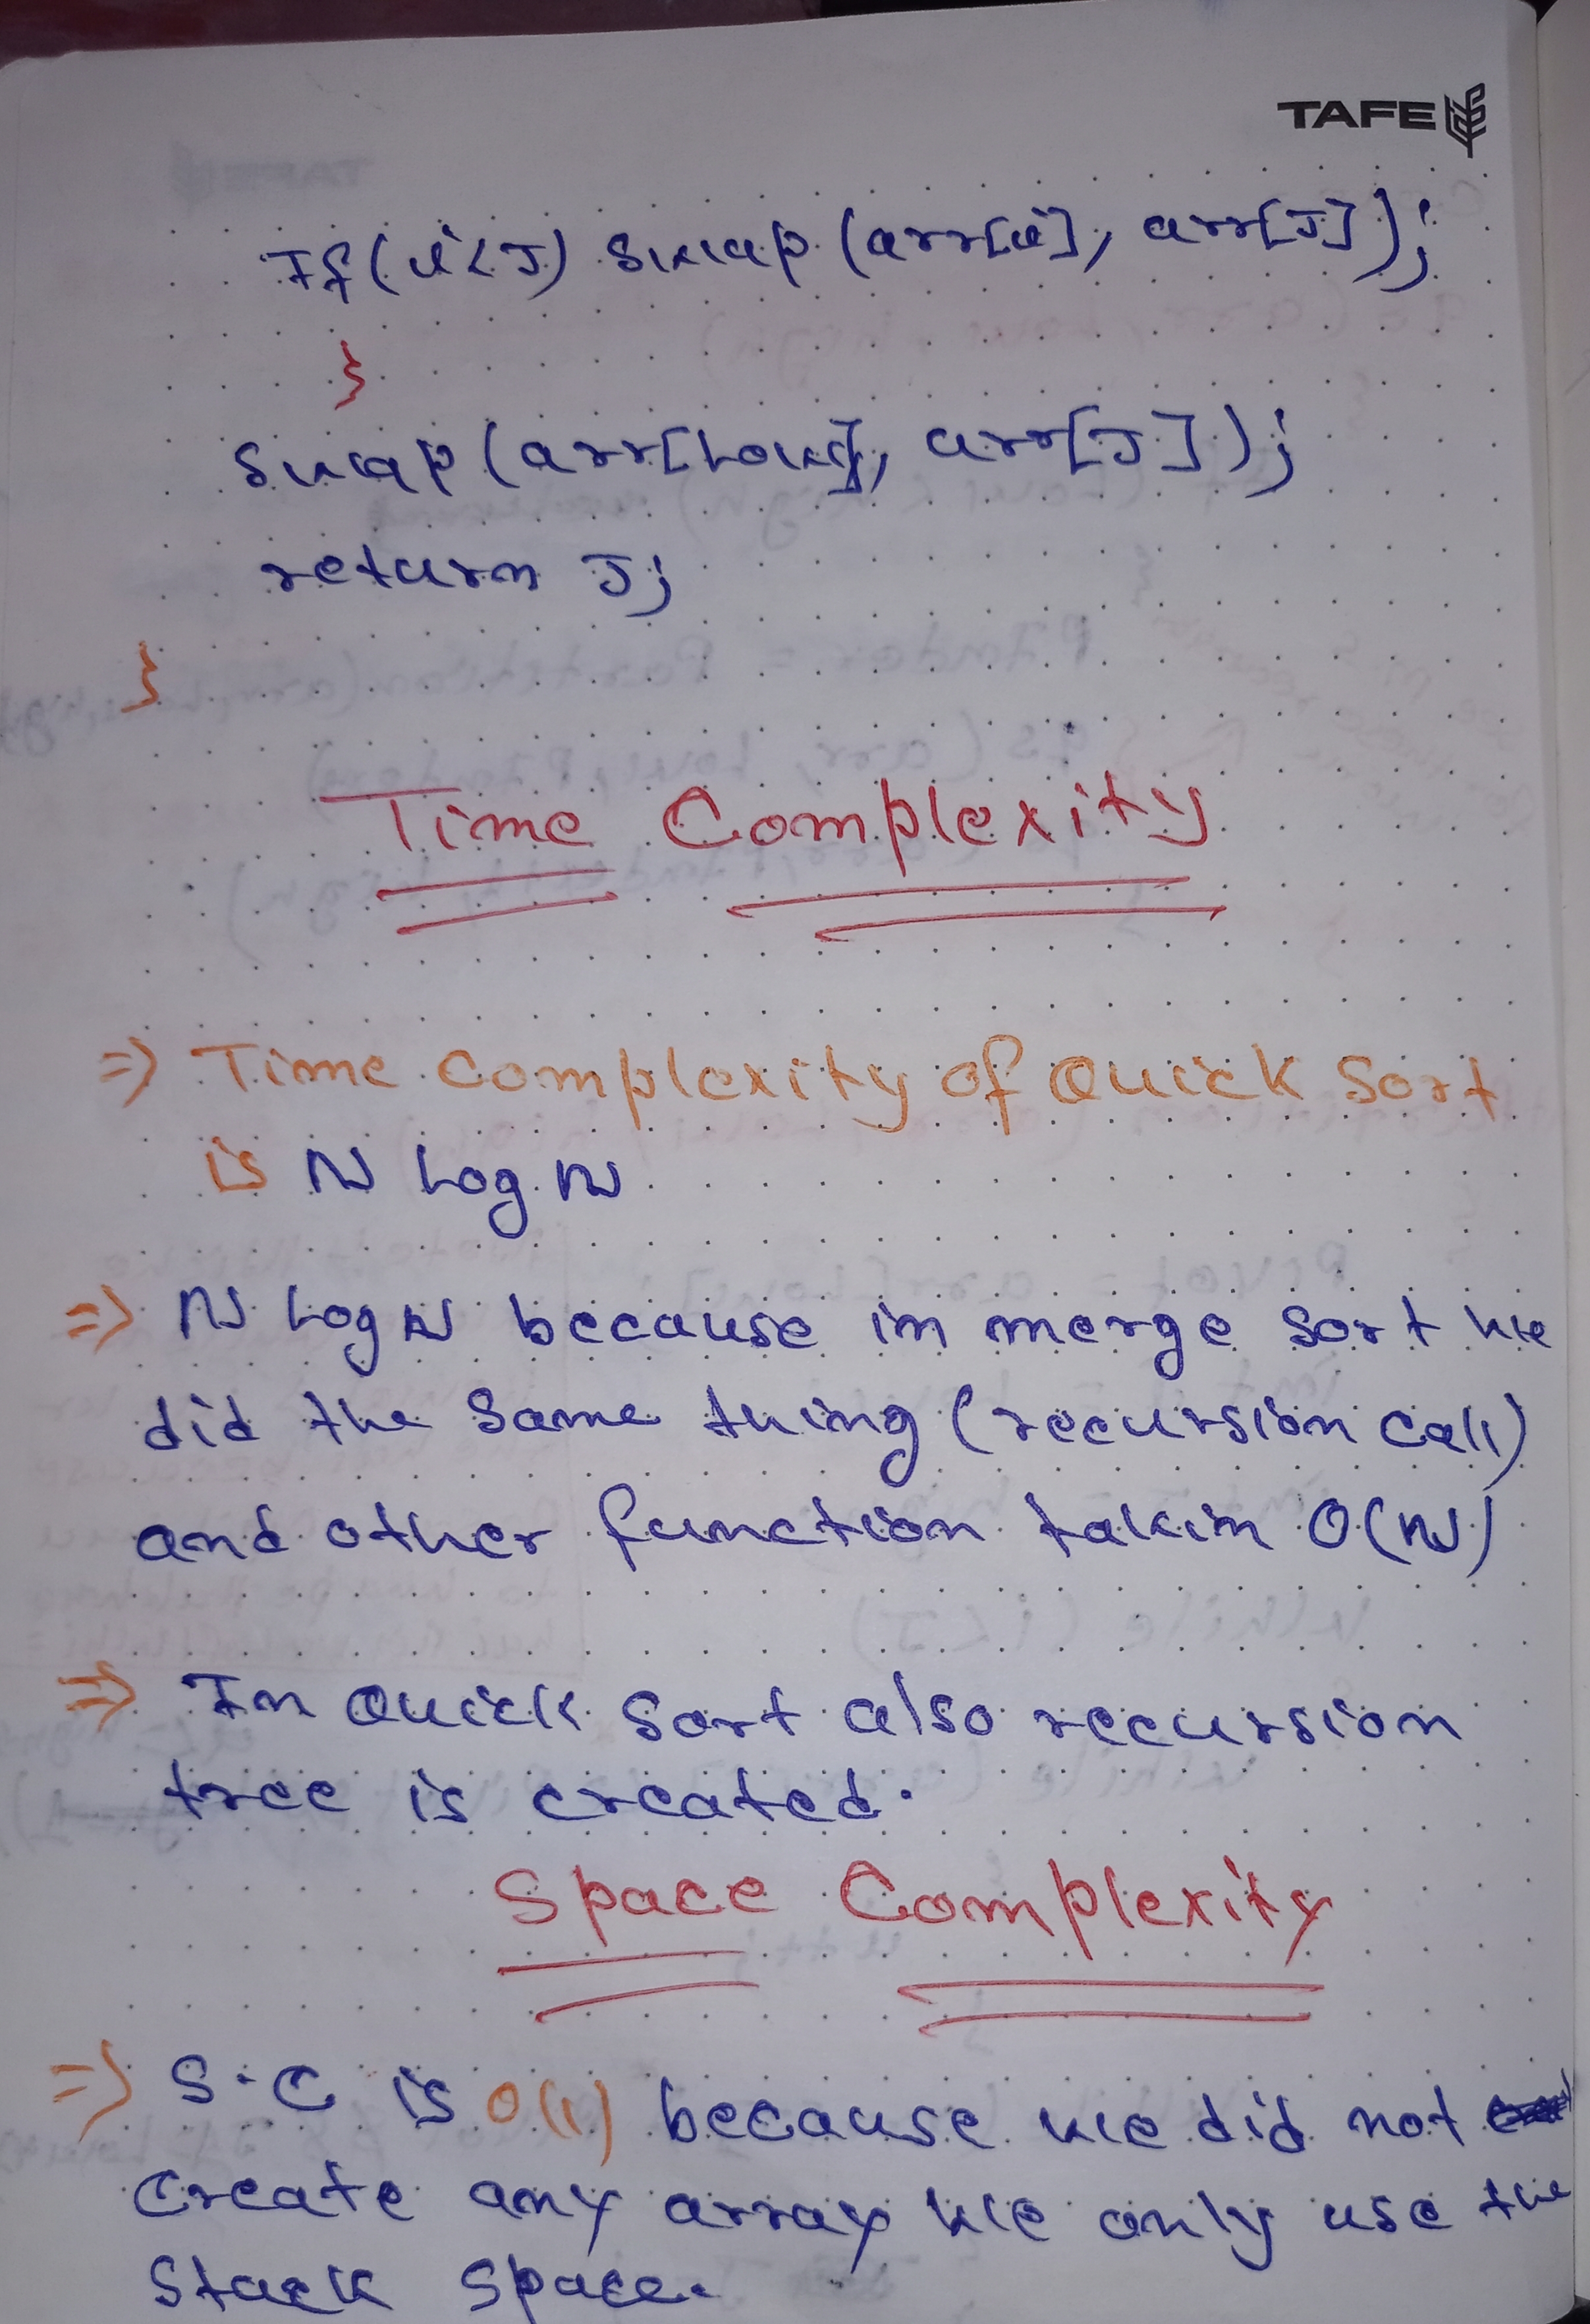 TAFE
If(i<J) swap (arr[i], arr[J]);
}
swap (arr[Low], arr[J]);
return J;
}
Time Complexity
=> Time Complexity of Quick Sort
is N Log N
=> N Log N because in merge sort we
did the same thing (recursion call)
and other function takin O(N)
=> In Quick Sort also recursion
tree is created.
Space Complexity
=> S.C is O(1) because we did not
create any array we only use the
stack space.